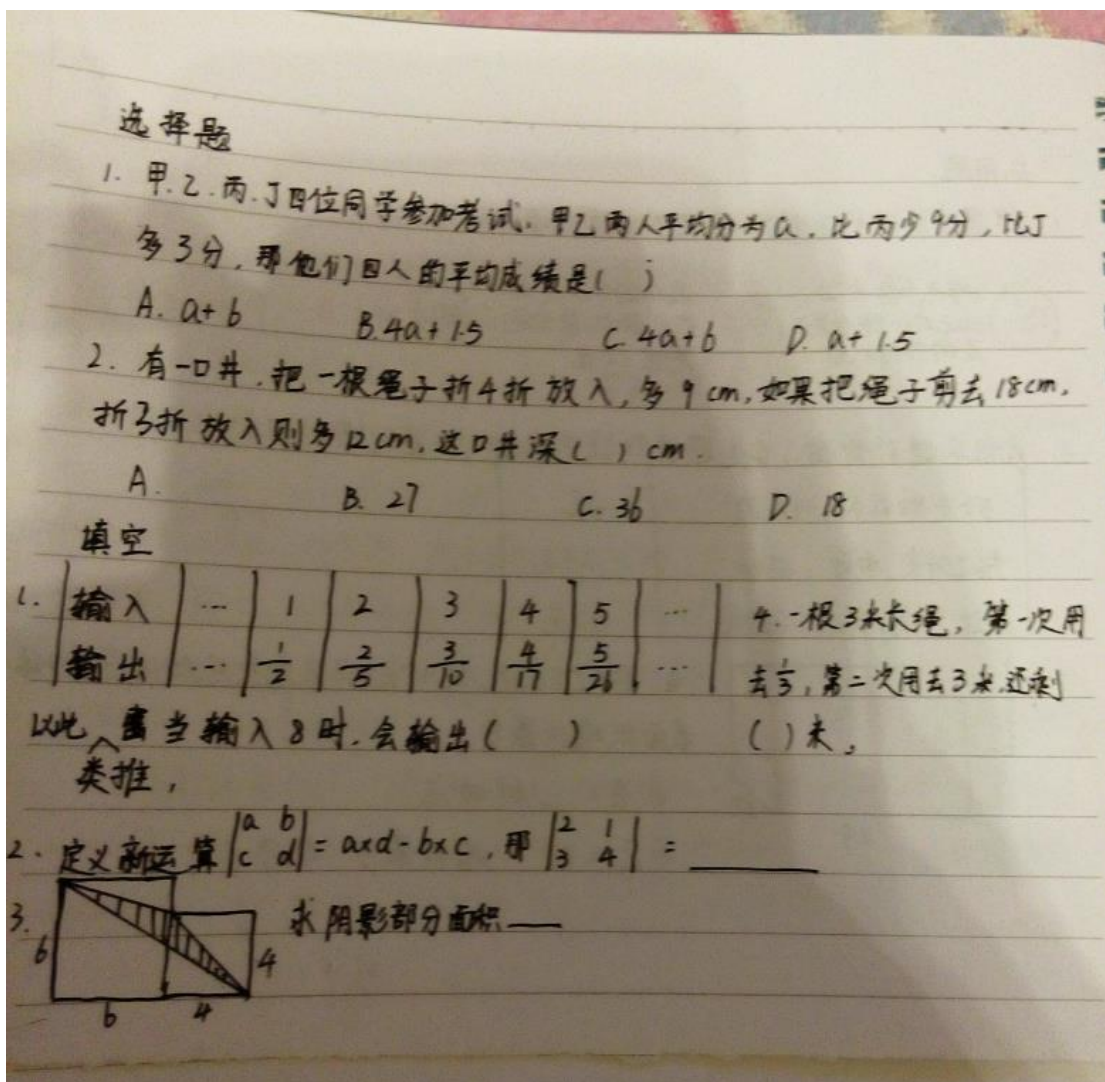 选择题
1. 甲.乙.丙.丁四位同学参加考试.甲乙两人平均分为a.比丙少9分,比丁
多3分,那他们四人的平均成绩是( )
A. a+6 B.4a+1.5 C. 4a+6 D. a+1.5
2. 有一口井.把一根绳子折4折放入,多9cm,如果把绳子剪去18cm,
折3折放入则多12cm,这口井深( )cm.
A. B. 27 C. 36 D. 18
填空
1. 输入 ... 1 2 3 4 5 ...
输出 ... 1/2 2/5 3/10 4/17 5/26 ...
以此类推,当输入8时.会输出( )
4.一根3米长绳,第一次用
去1/3,第二次用去3米,还剩
( )米。
2. 定义新运算|a b c d|=a×d-b×c,那|2 1 3 4|=
3. 求阴影部分面积
6 4
6 4